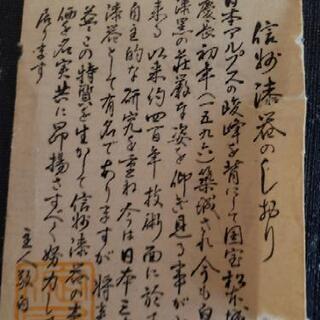 信州漆器のしおり
日本アルプスの峻峰を背にして国宝松本城
慶長初年(一五九六)築城され今も白
漆黒の荘厳な姿を仰ぎ見る事が
来る 以来約四百年 技術面に於て
自主的な研究を重ね 今は日本三
漆器として有名でありますが将
益々この特質を生かして信州漆器の
価を名実共に昂揚さすべく努力して
居ります
主人敬白